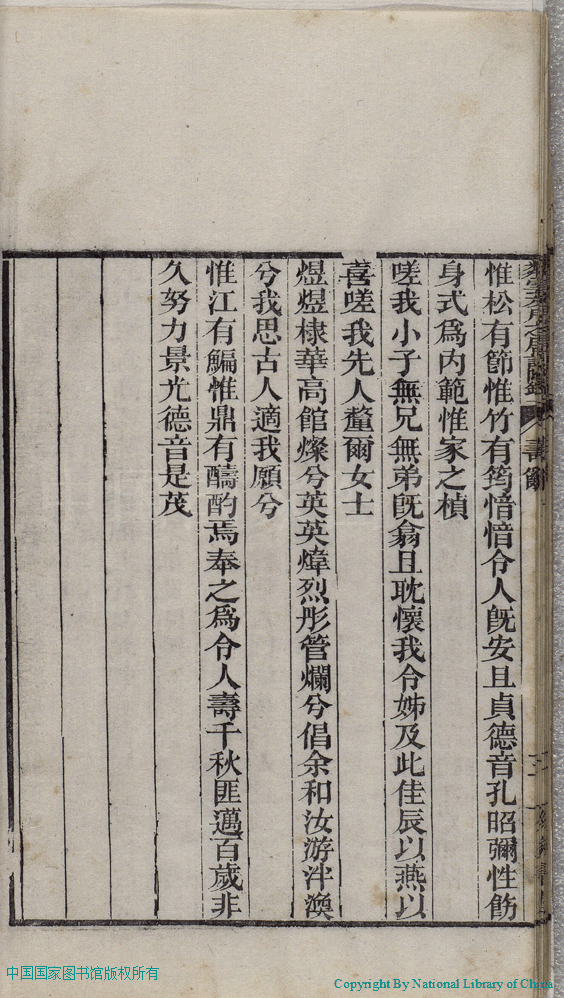 惟松有節惟竹有筠愔愔令人旣安且貞德音孔昭彌性飭
身式爲內範惟家之楨
嗟我小子無兄無弟旣翕且耽懷我令姊及此佳辰以燕以
喜嗟我先人釐爾女士
煜煜棣華高館燦兮英英煒烈彤管爛兮倡余和汝游泮渙
兮我思古人適我願兮
惟江有鯿惟鼎有醻酌焉奉之爲令人壽千秋匪邁百歲非
久努力景光德音是茂
中国国家图书馆版权所有
Copyright By National Library of China